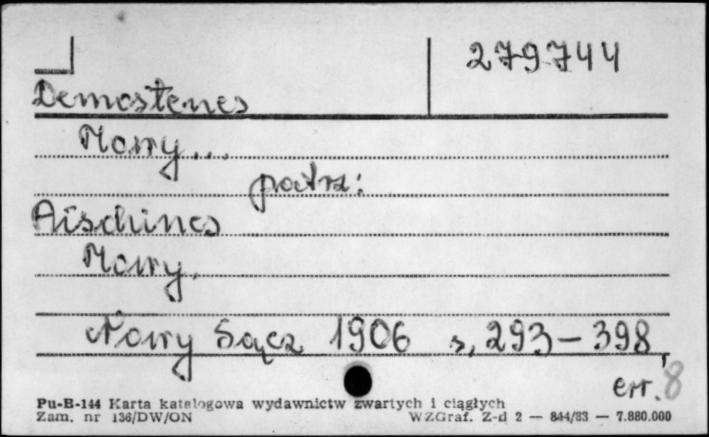 279744
Demostenes
Mowy...
patrz:
Aischines
Mowy.
Nowy Sącz 1906 s, 293-398,
err. 8
Pu-B-144 Karta katalogowa wydawnictw zwartych i ciągłych
Zam. nr 136/DW/ON WZGraf. Z-d 2 — 844/83 — 7.880.000